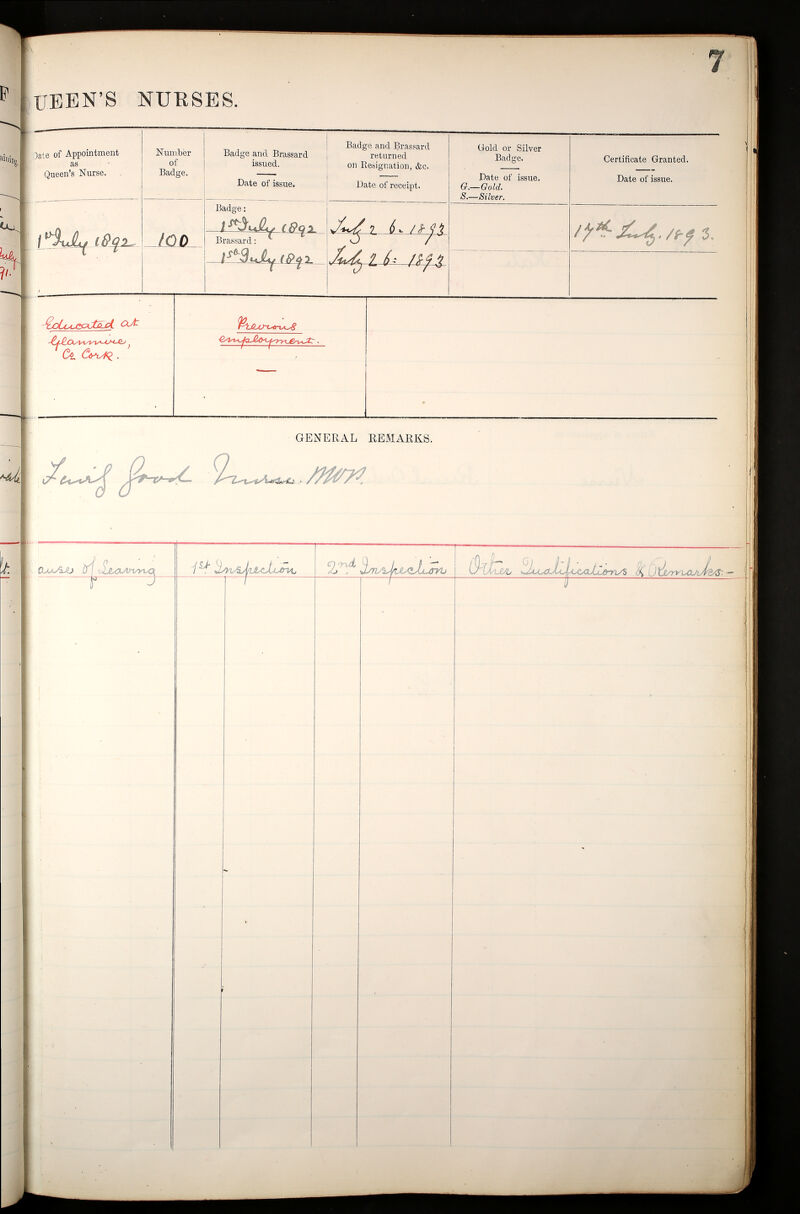 7
UEEN'S NURSES.
Date of Appointment
as
Queen's Nurse.
Number
of
Badge.
Badge and Brassard
issued.
Date of issue.
Badge and Brassard
returned
on Resignation, &c.
Date of receipt.
Gold or Silver
Badge.
Date of issue.
G.—Gold.
S.—Silver.
Certificate Granted.
Date of issue.
1st July 1892
100
Badge:
1st July 1892
Brassard:
1st July 1892
July 26. 1893
July 26: 1893
17th July. 1893.
Educated at
Glanmire,
Co. Cork.
Previous
employment.
—
GENERAL REMARKS.
Fairly good Nurse.
ause of Leaving
1st Inspection
2nd Inspection
Other Qualifications & Remarks:-